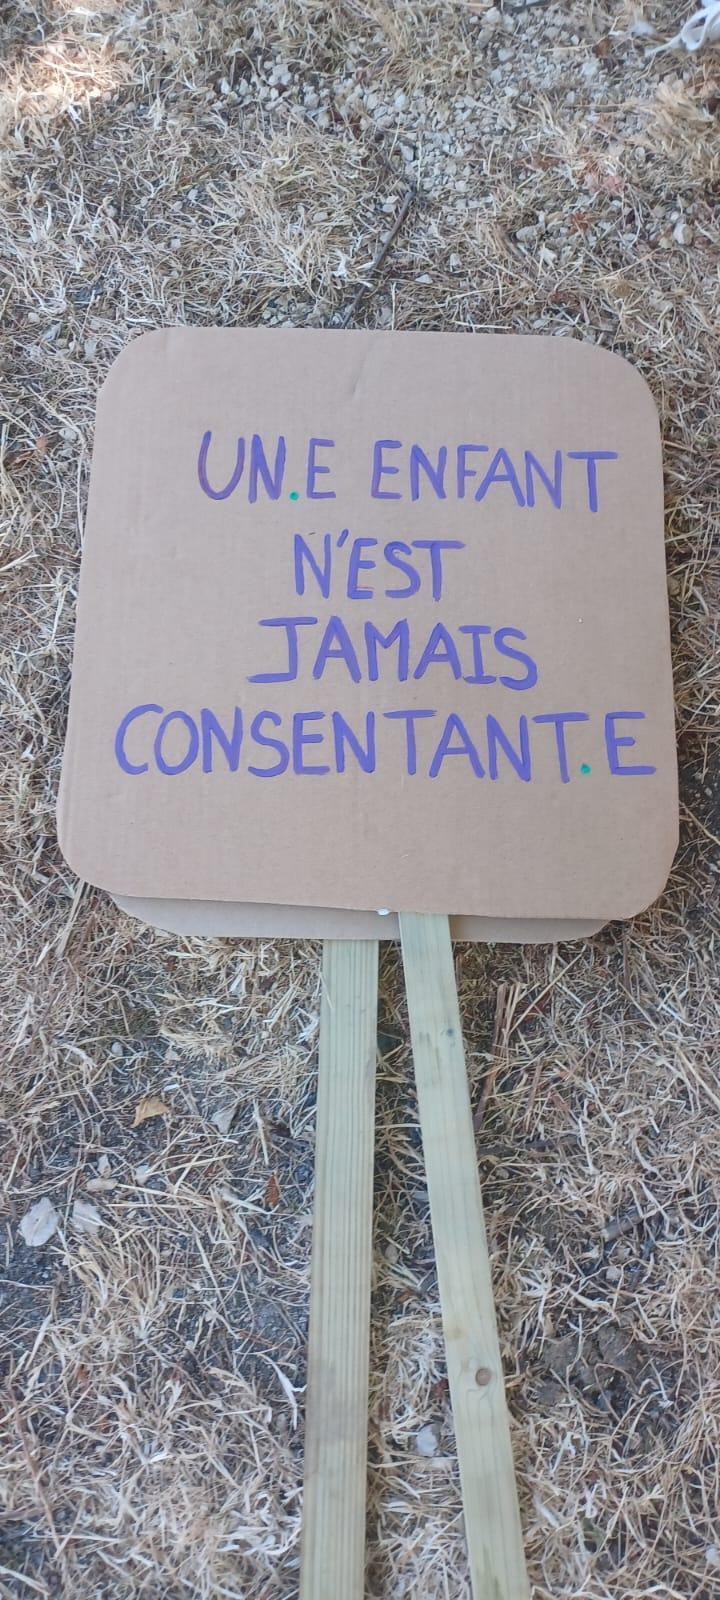 UN.E ENFANT
N'EST
JAMAIS
CONSENTANT.E